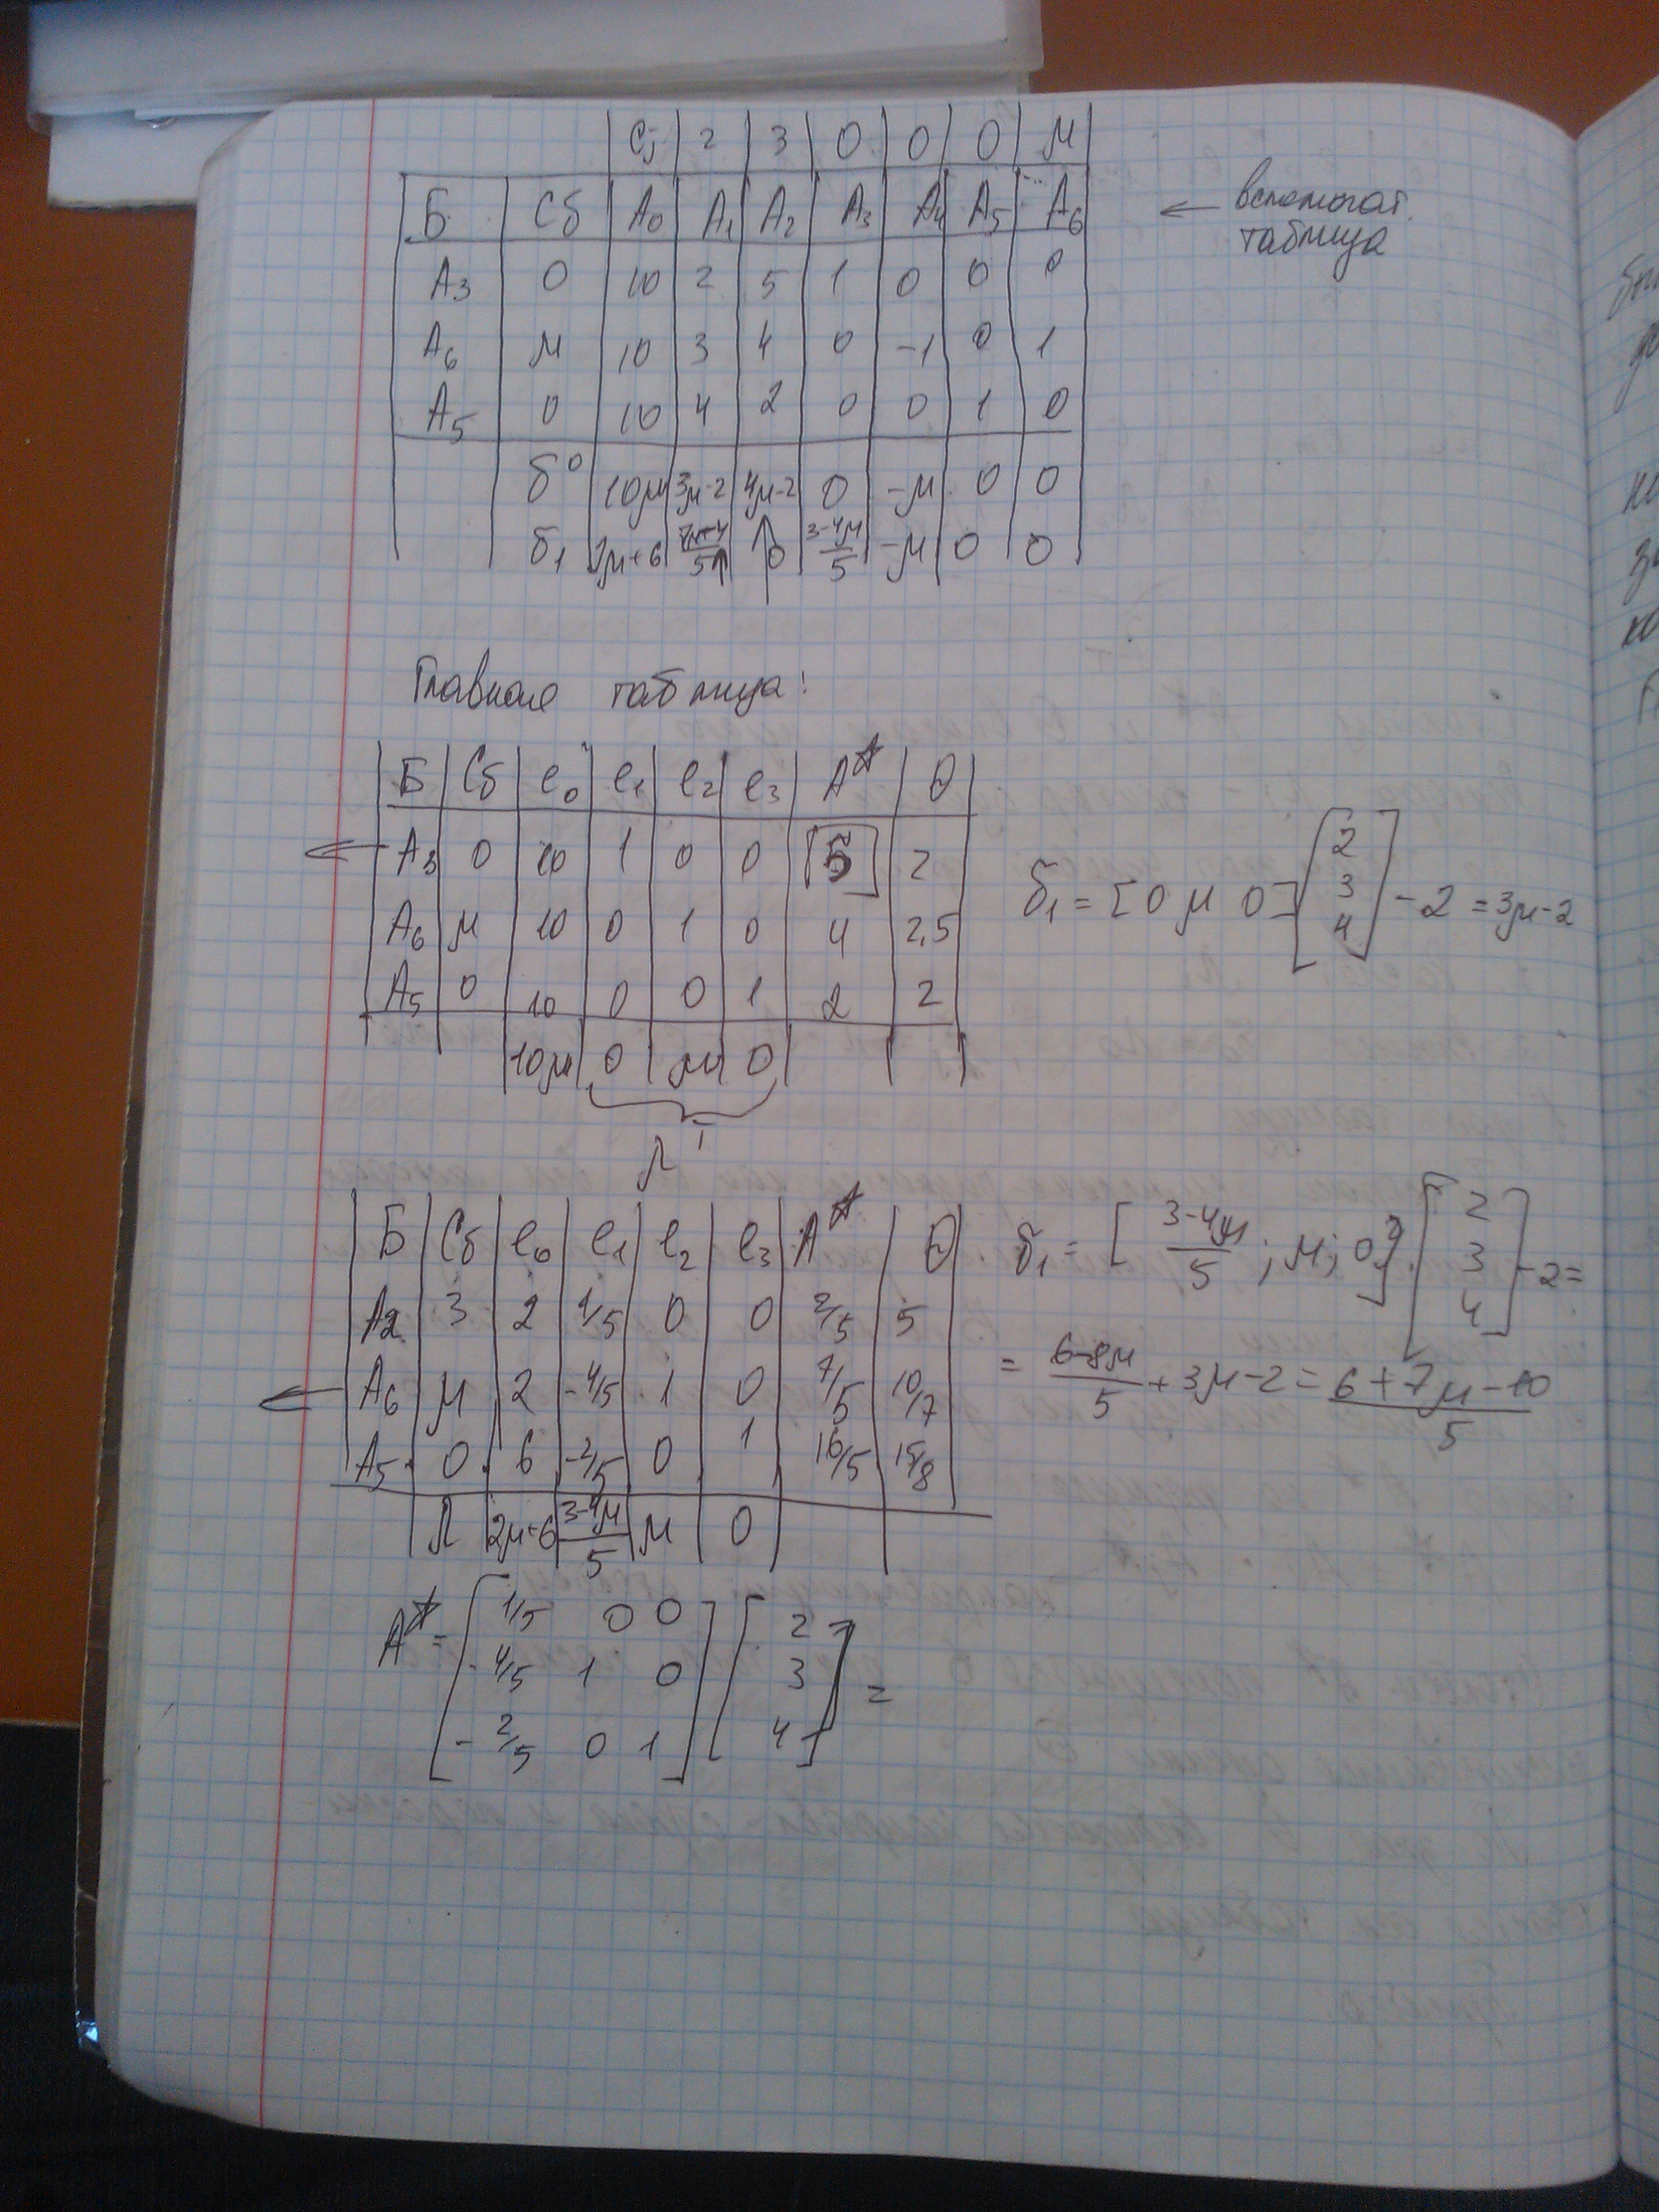 Cj 2 3 0 0 0 M
Б Сб A₀ A₁ A₂ A₃ A₄ A₅ A₆ ← вспомогат.
таблица
A₃ 0 10 2 5 1 0 0 0
A₆ M 10 3 4 0 -1 0 1
A₅ 0 10 4 2 0 0 1 0
δ⁰ 10M 3M-2 4M-2 0 -M 0 0
δ₁ 2M+6 0 3-4M/5 -M 0 0
Главная таблица:
Б Сб e₀ e₁ e₂ e₃ A* Θ
← A₃ 0 10 1 0 0 5 2
A₆ M 10 0 1 0 4 2,5
A₅ 0 10 0 0 1 2 2
10M 0 M 0
δ₁ = [0 M 0] [2 3 4] - 2 = 3M-2
Λᵀ
Б Сб e₀ e₁ e₂ e₃ A* Θ
A₂ 3 2 1/5 0 0 2/5 5
← A₆ M 2 -4/5 1 0 7/5 10/7
A₅ 0 6 -2/5 0 1 16/5 15/8
Λ 2M+6 3-4M/5 M 0
δ₁ = [3-4M/5 ; M; 0] · [2 3 4] - 2 =
= 6-8M/5 + 3M-2 = 6+7M-10/5
A* = [1/5 0 0 [2
-4/5 1 0 3
-2/5 0 1] 4] =